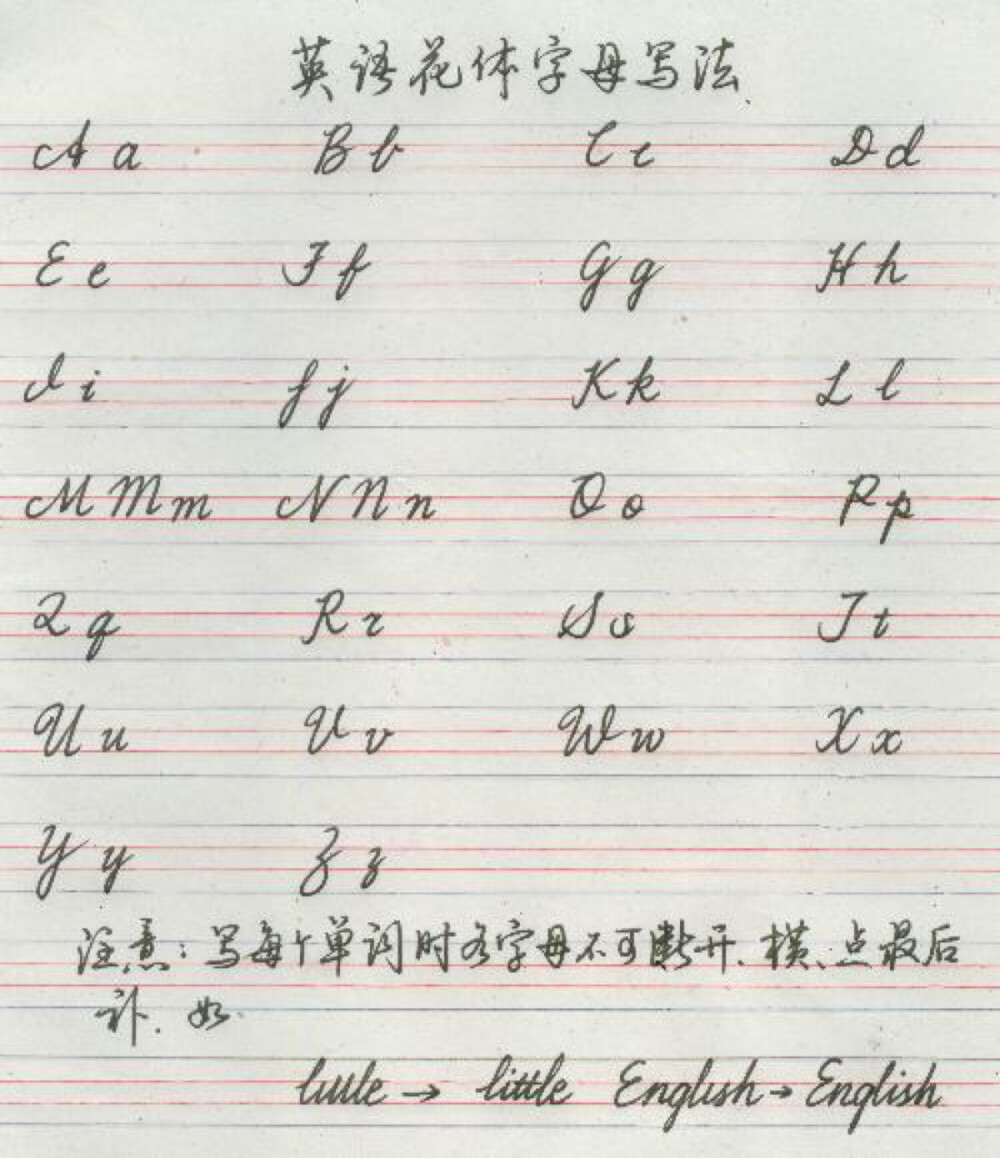 英语花体字母写法
Aa Bb Cc Dd
Ee Ff Gg Hh
Ii Jj Kk Ll
MMm NNn Oo Pp
Qq Rr Ss Tt
Uu Vv Ww Xx
Yy Zz
注意:写每个单词时各字母不可断开、横、点最后
补.如
little → little English → English